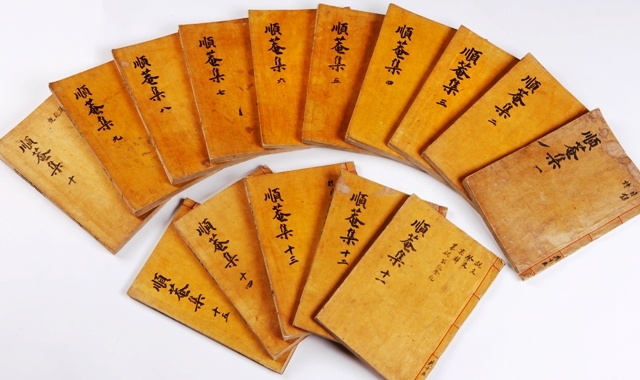 順菴集 一
順菴集 二
順菴集 三
順菴集 四
順菴集 五
順菴集 六
順菴集 七
順菴集 八
順菴集 九
順菴集 十
順菴集 十一
順菴集 十二
順菴集 十三
順菴集 十四
順菴集 十五